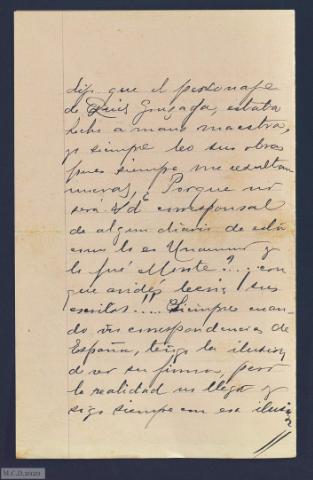 dijo que el personaje
de Quiso Quijada, estaba
hecho a mano maestra,
yo siempre leo sus obras
pues siempre me resultan
nuevas, ¿Porque no
será Vd corresponsal
de algun diario de esta
como lo es Unamuno y
lo fué Morote?... con
que avidés leeria sus
escritos!!... Siempre cuan-
do veo correspondencias de
España, tengo la ilusion
de ver su firma, pero
la realidad no llega y
sigo siempre con esa ilusión
M.C.D.2020